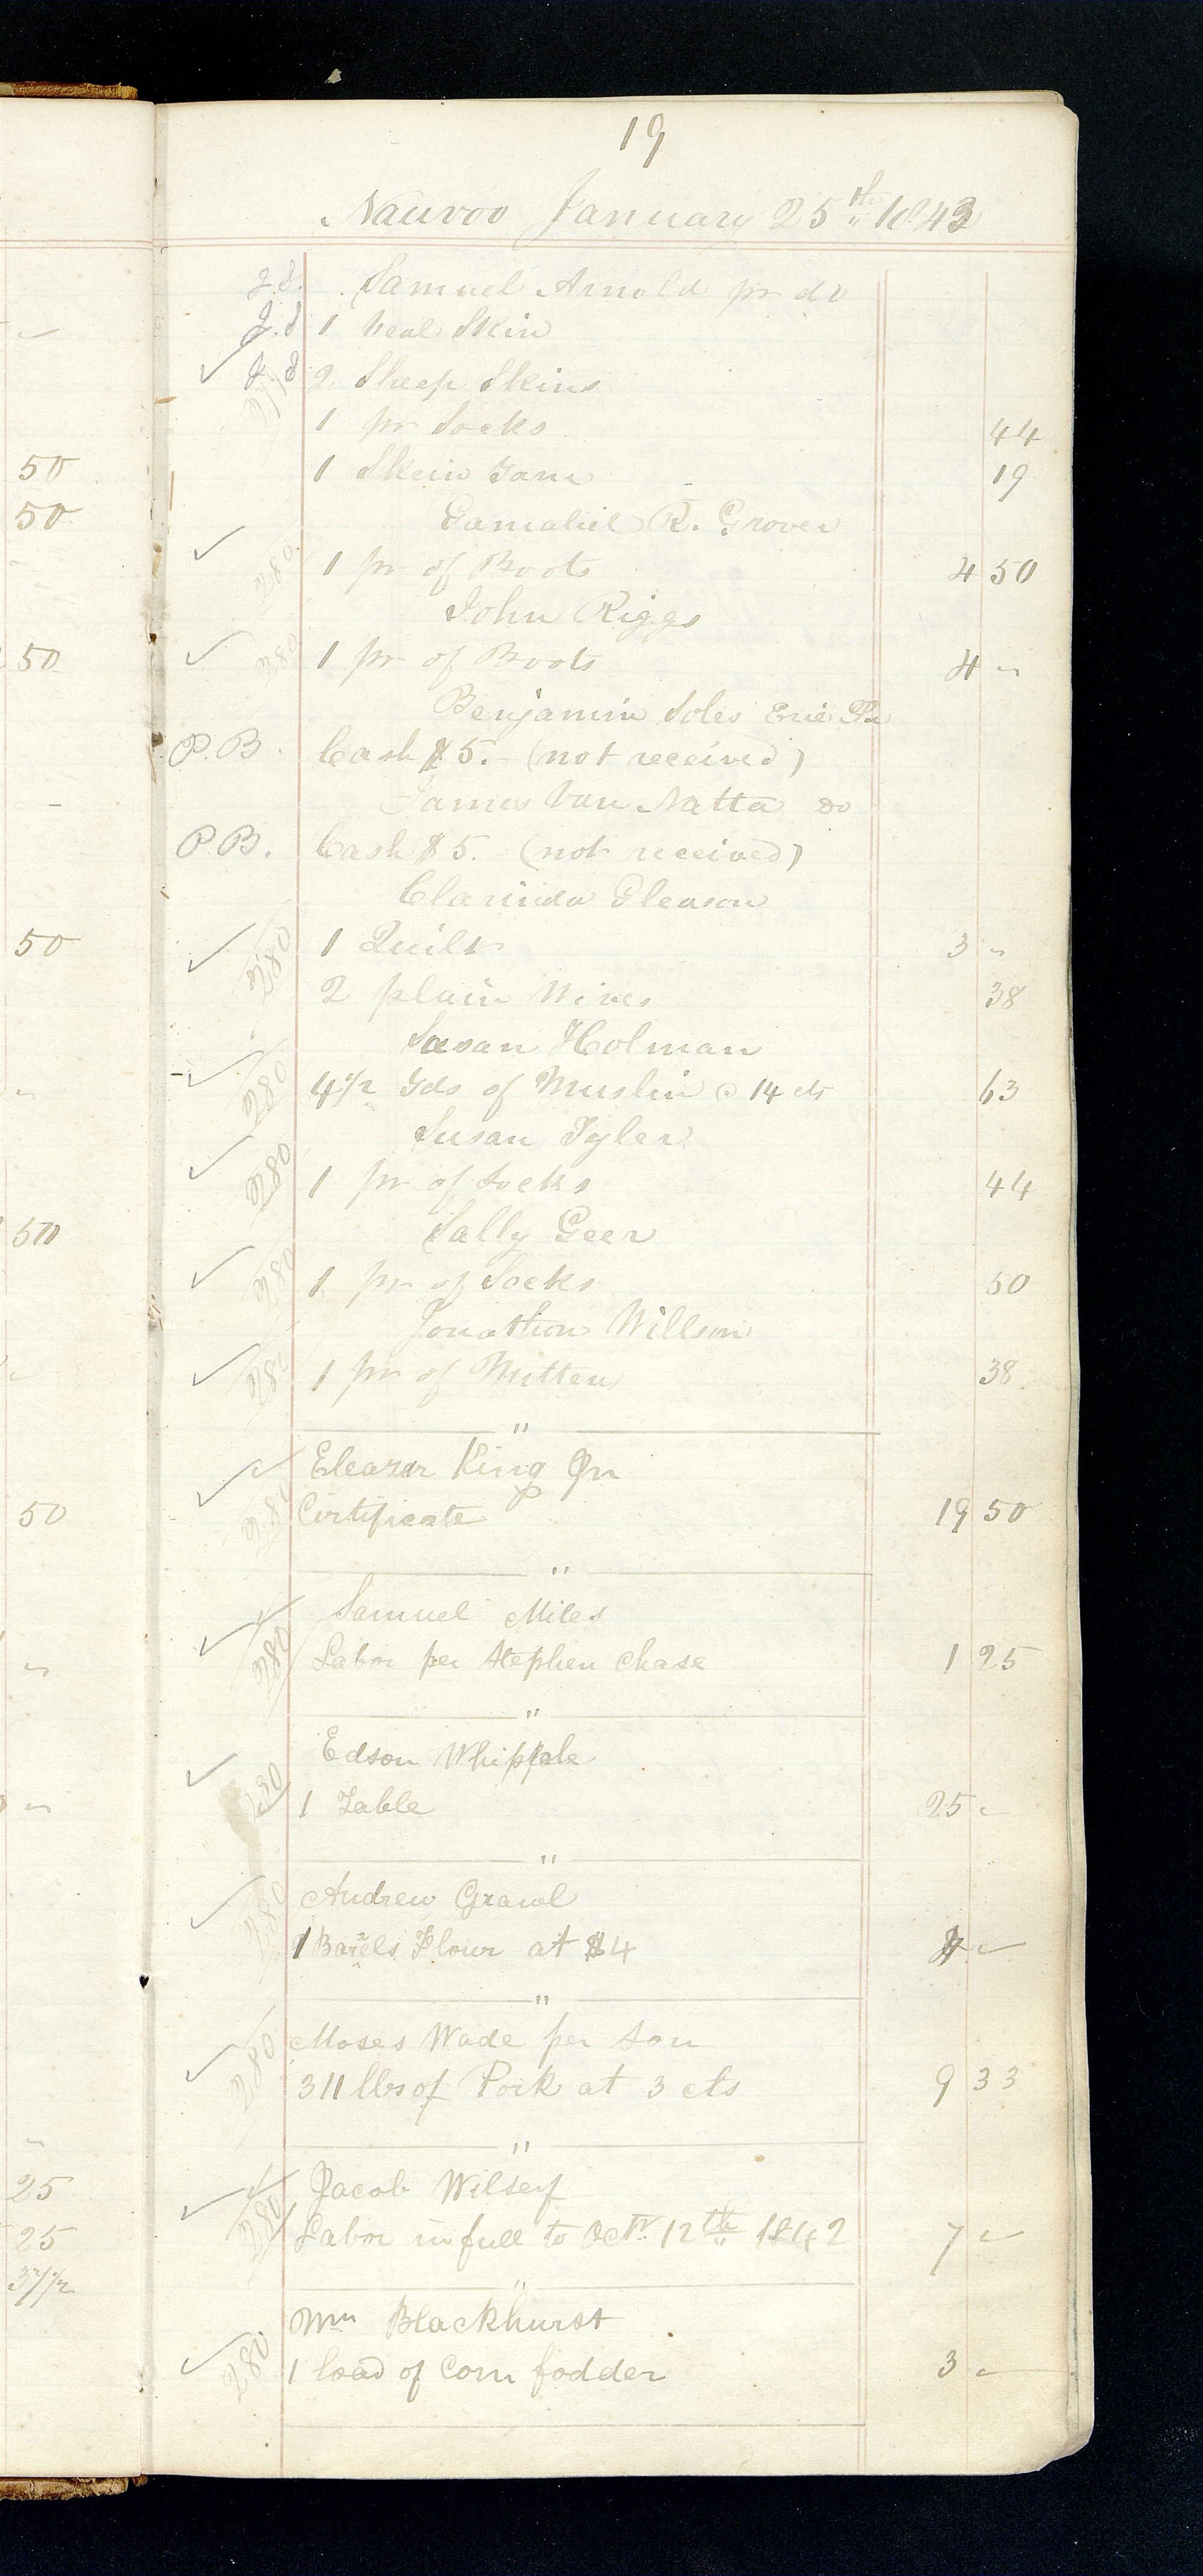 19
Nauvoo January 25th 1843
J.S. Samuel Arnold pr do
J.S 1 Veal Skin
✓ J.S 2 Sheep Skins
1 pr Socks 44
1 Skein Yarn 19
Gamaliel R. Grover
✓ 1 pr of Boots 4 50
John Riggs
✓ 1 pr of Boots 4 "
Benjamin Soles Erie Pa
P.B. Cash $5. (not received)
James Van Natta Do
P.B. Cash $5. (not received)
Clarinda Gleason
✓ 1 Quilt 3 "
2 plain Wires 38
Susan Holman
✓ 4 1/2 Yds of Muslin @ 14 cts 63
Susan Tyler
✓ 1 pr of Socks 44
Sally Geer
✓ 1 pr of Socks 50
Jonathon Willson
✓ 1 pr of Mittens 38
"
Eleazar King Jn
✓ Certificate 19 50
"
Samuel Miles
✓ Labor per Stephen Chase 1 25
"
Edson Whipple
✓ 1 Table 25 "
"
Andrew Grawl
✓ 1 Barrels Flour at $4 4 "
"
Moses Wade per Son
✓ 311 lbs of Pork at 3 cts 9 33
"
Jacob Wilsey
✓ Labor in full to Octr 12th 1842 7 "
"
Wm Blackhurst
✓ 1 load of Corn fodder 3 "
50
50
50
50
50
50
25
25
37 1/2